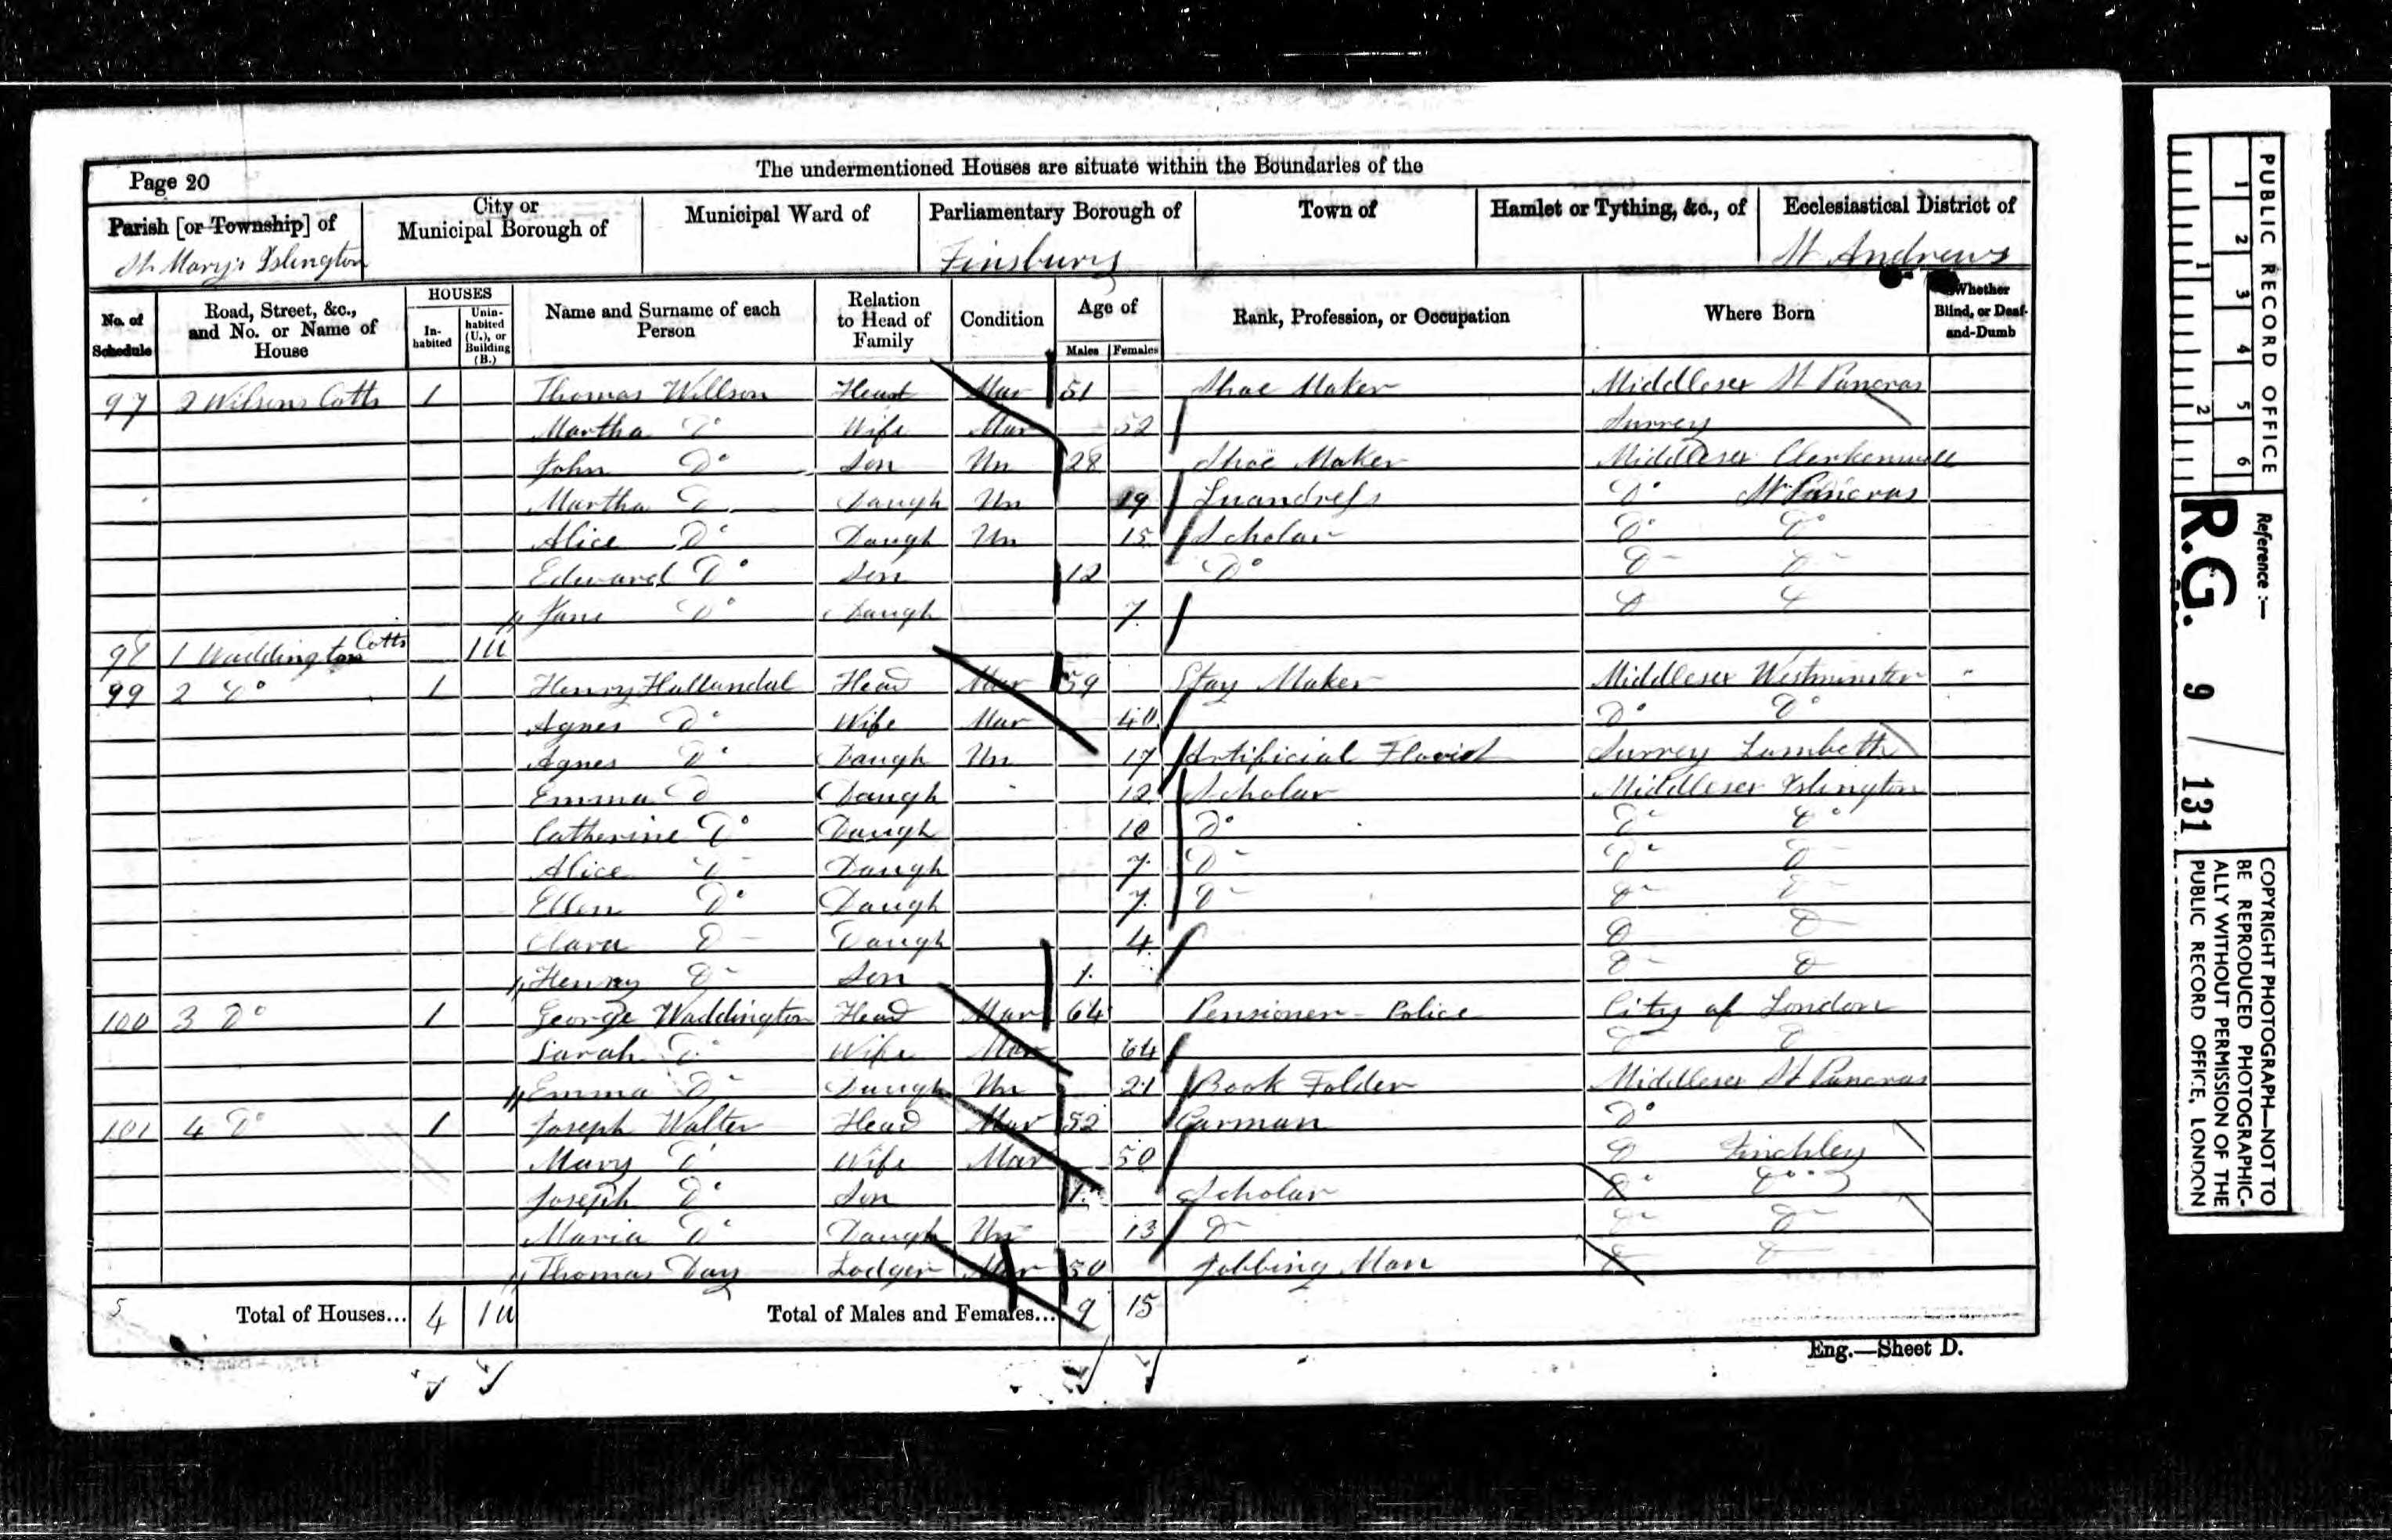 The undermentioned Houses are situate within the Boundaries of the
Page 20
Parish [or Township] of St. Mary's Islington
City or Municipal Borough of
Municipal Ward of
Parliamentary Borough of Finsbury
Town of
Hamlet or Tything, &c., of
Ecclesiastical District of St Andrews
No. of Schedule
Road, Street, &c., and No. or Name of House
HOUSES
Inhabited
Uninhabited (U.), or Building (B.)
Name and Surname of each Person
Relation to Head of Family
Condition
Age of
Males Females
Rank, Profession, or Occupation
Where Born
Whether Blind, or Deaf-and-Dumb
97 2 Wilsons Cotts 1 Thomas Willson Head Mar 51 Shoe Maker Middlesex St Pancras
Martha Do Wife Mar 52 Surrey
John Do Son Un 28 Shoe Maker Middlesex Clerkenwell
Martha Do Daugh Un 19 Luandress Do St Pancras
Alice Do Daugh Un 15 Scholar Do Do
Edward Do Son 12 Do Do Do
Jane Do Daugh 7 Do Do
98 1 Waddington Cotts 1U
99 2 Do 1 Henry Hallandal Head Mar 59 Stay Maker Middlesex Westminster
Agnes Do Wife Mar 40 Do Do
Agnes Do Daugh Un 17 Artificial Florist Surrey Lambeth
Emma Do Daugh 12 Scholar Middlesex Islington
Catherine Do Daugh 10 Do Do Do
Alice Do Daugh 7 Do Do Do
Ellen Do Daugh 7 Do Do Do
Clara Do Daugh 4 Do Do
Henry Do Son 1 Do Do
100 3 Do 1 George Waddington Head Mar 64 Pensioner - Police City of London
Sarah Do Wife Mar 64 Do Do
Emma Do Daugh Un 21 Book Folder Middlesex St Pancras
101 4 Do 1 Joseph Walter Head Mar 52 Carman Do
Mary Do Wife Mar 50 Do Finchley
Joseph Do Son Scholar Do Do
Maria Do Daugh Un 13 Do Do Do
Thomas Day Lodger Mar 50 Jobbing Man Do Do
5 Total of Houses... 4 1U Total of Males and Females... 9 15
Eng.—Sheet D.
PUBLIC RECORD OFFICE
1 2 3 4 5 6
1 2
Reference :—
R.G. 9 / 131
COPYRIGHT PHOTOGRAPH—NOT TO
BE REPRODUCED PHOTOGRAPHIC-
ALLY WITHOUT PERMISSION OF THE
PUBLIC RECORD OFFICE, LONDON